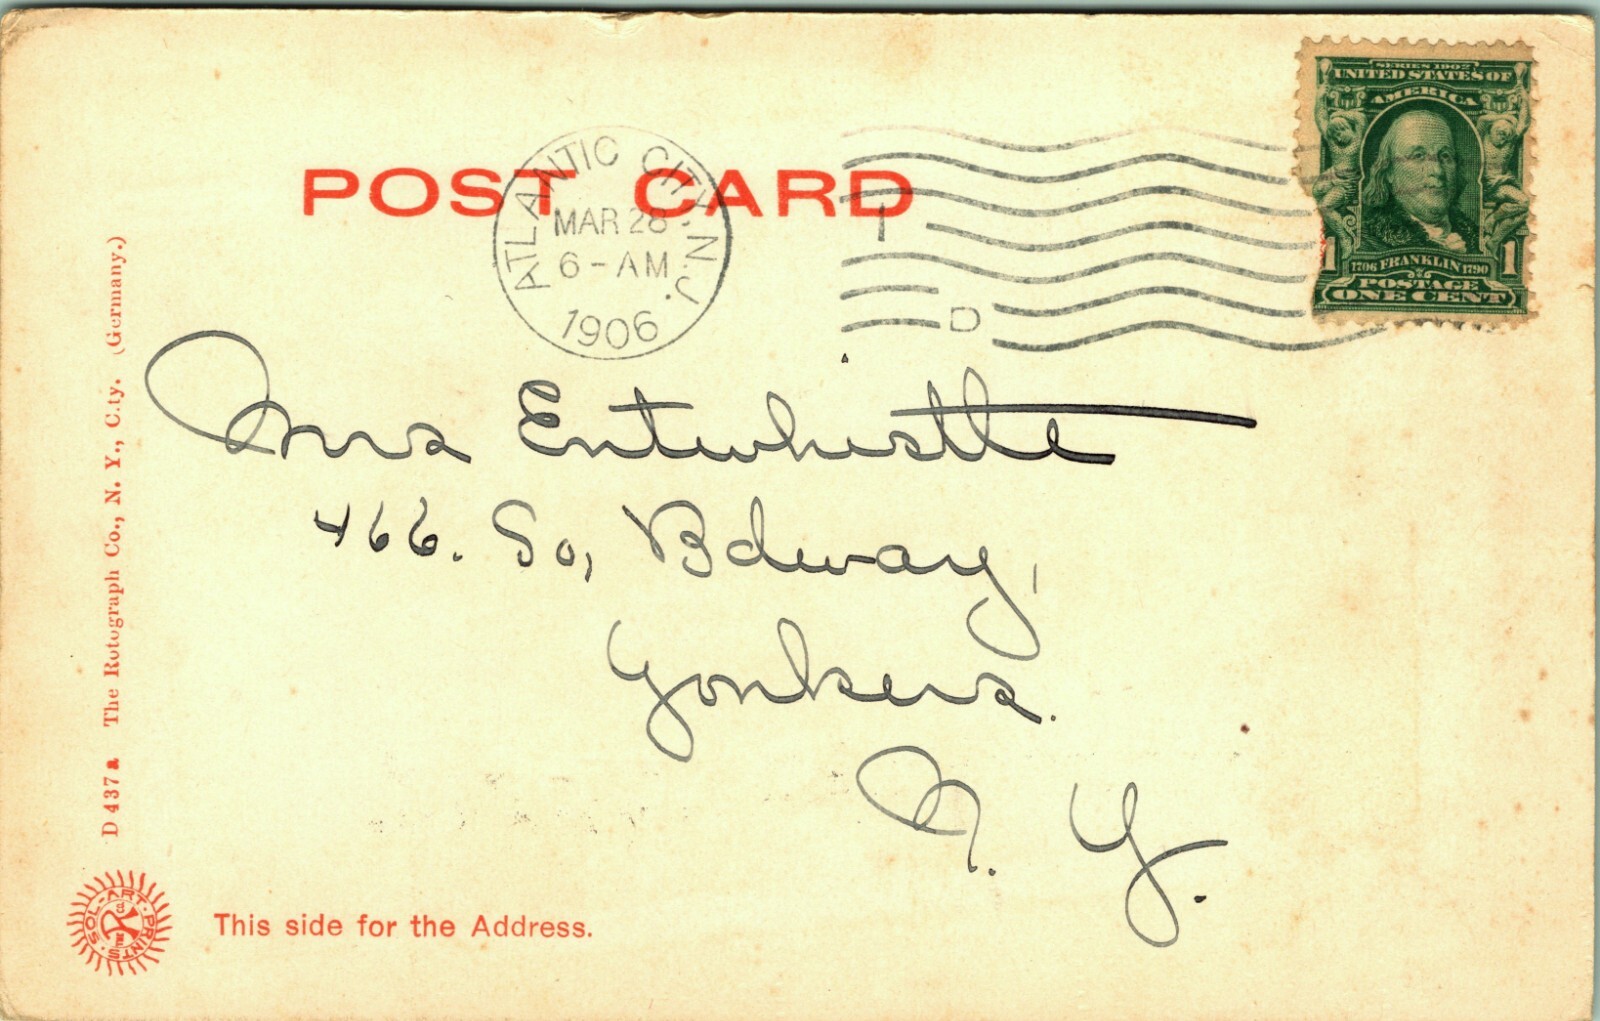 SERIES 1902
UNITED STATES OF
AMERICA
1 1
1706 FRANKLIN 1790
POSTAGE
ONE CENT
POST CARD
ATLANTIC CITY, N.J.
MAR 28
6-AM
1906
1
D
Mrs Entwhistle
466. So, Bdway,
Yonkers.
N. Y.
D 437 a The Rotograph Co., N. Y., City. (Germany.)
SOL-ART-PRINTS
This side for the Address.